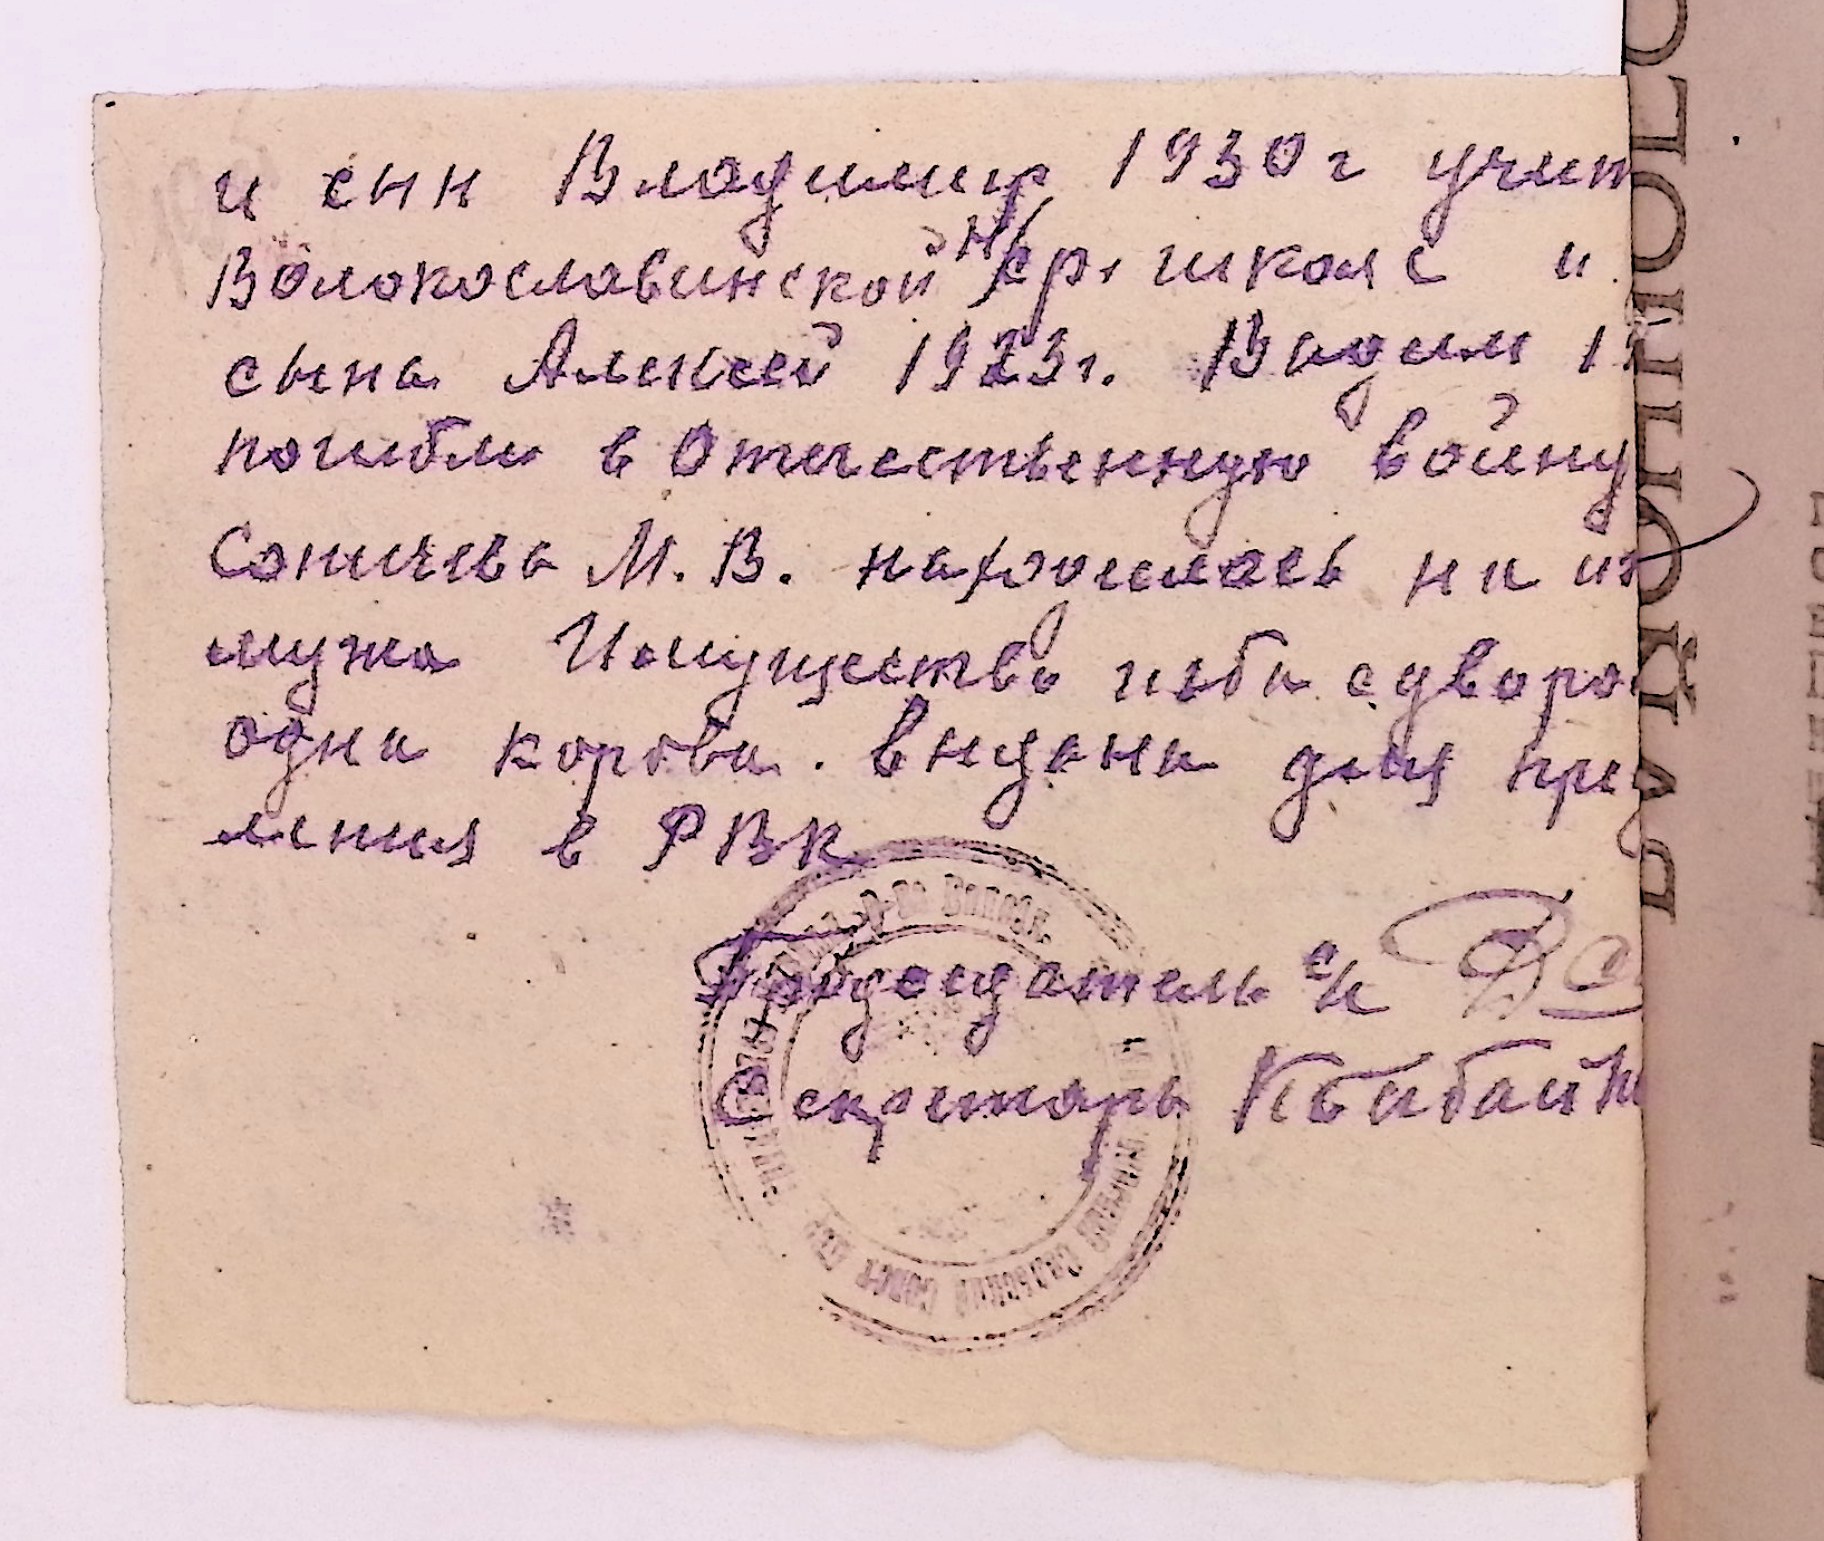 и сын Владимир 1930 г учит
Волокославинской н/ср. школе и
сына Алексей 1923 г. Вадим 1
погибли в Отечественную войну
Соничева М. В. находилась на иж
мужа Имущество изба с двором
одна корова. выдана для пре
ления в РВК
Председатель с/с
Секретарь
Сельский Совет